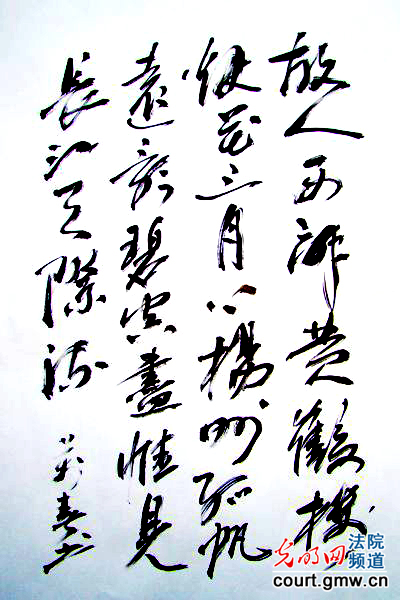 故人西辞黄鶴楼
烟花三月下揚州孤帆
遠影碧空盡惟見
長江天際流
光明网
法院
频道
court.gmw.cn